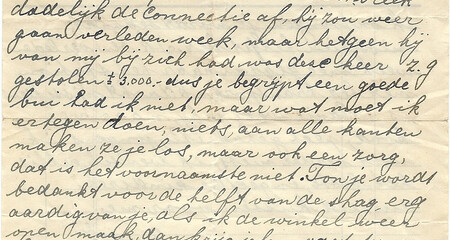 dadelijk de connectie af, hij zou weer
gaan verleden week, maar hetgeen hij
van mij bij zich had was deze keer z.g
gestolen ± 3.000.- dus je begrijpt een goede
bui had ik niet, maar wat moet ik
ertegen doen, niets, aan alle kanten
maken ze je los, maar ook een zorg,
dat is het voornaamste niet. Ton je wordt
bedankt voor de helft van de shag, erg
aardig van je, als ik de winkel weer
open maak, dan krijg je